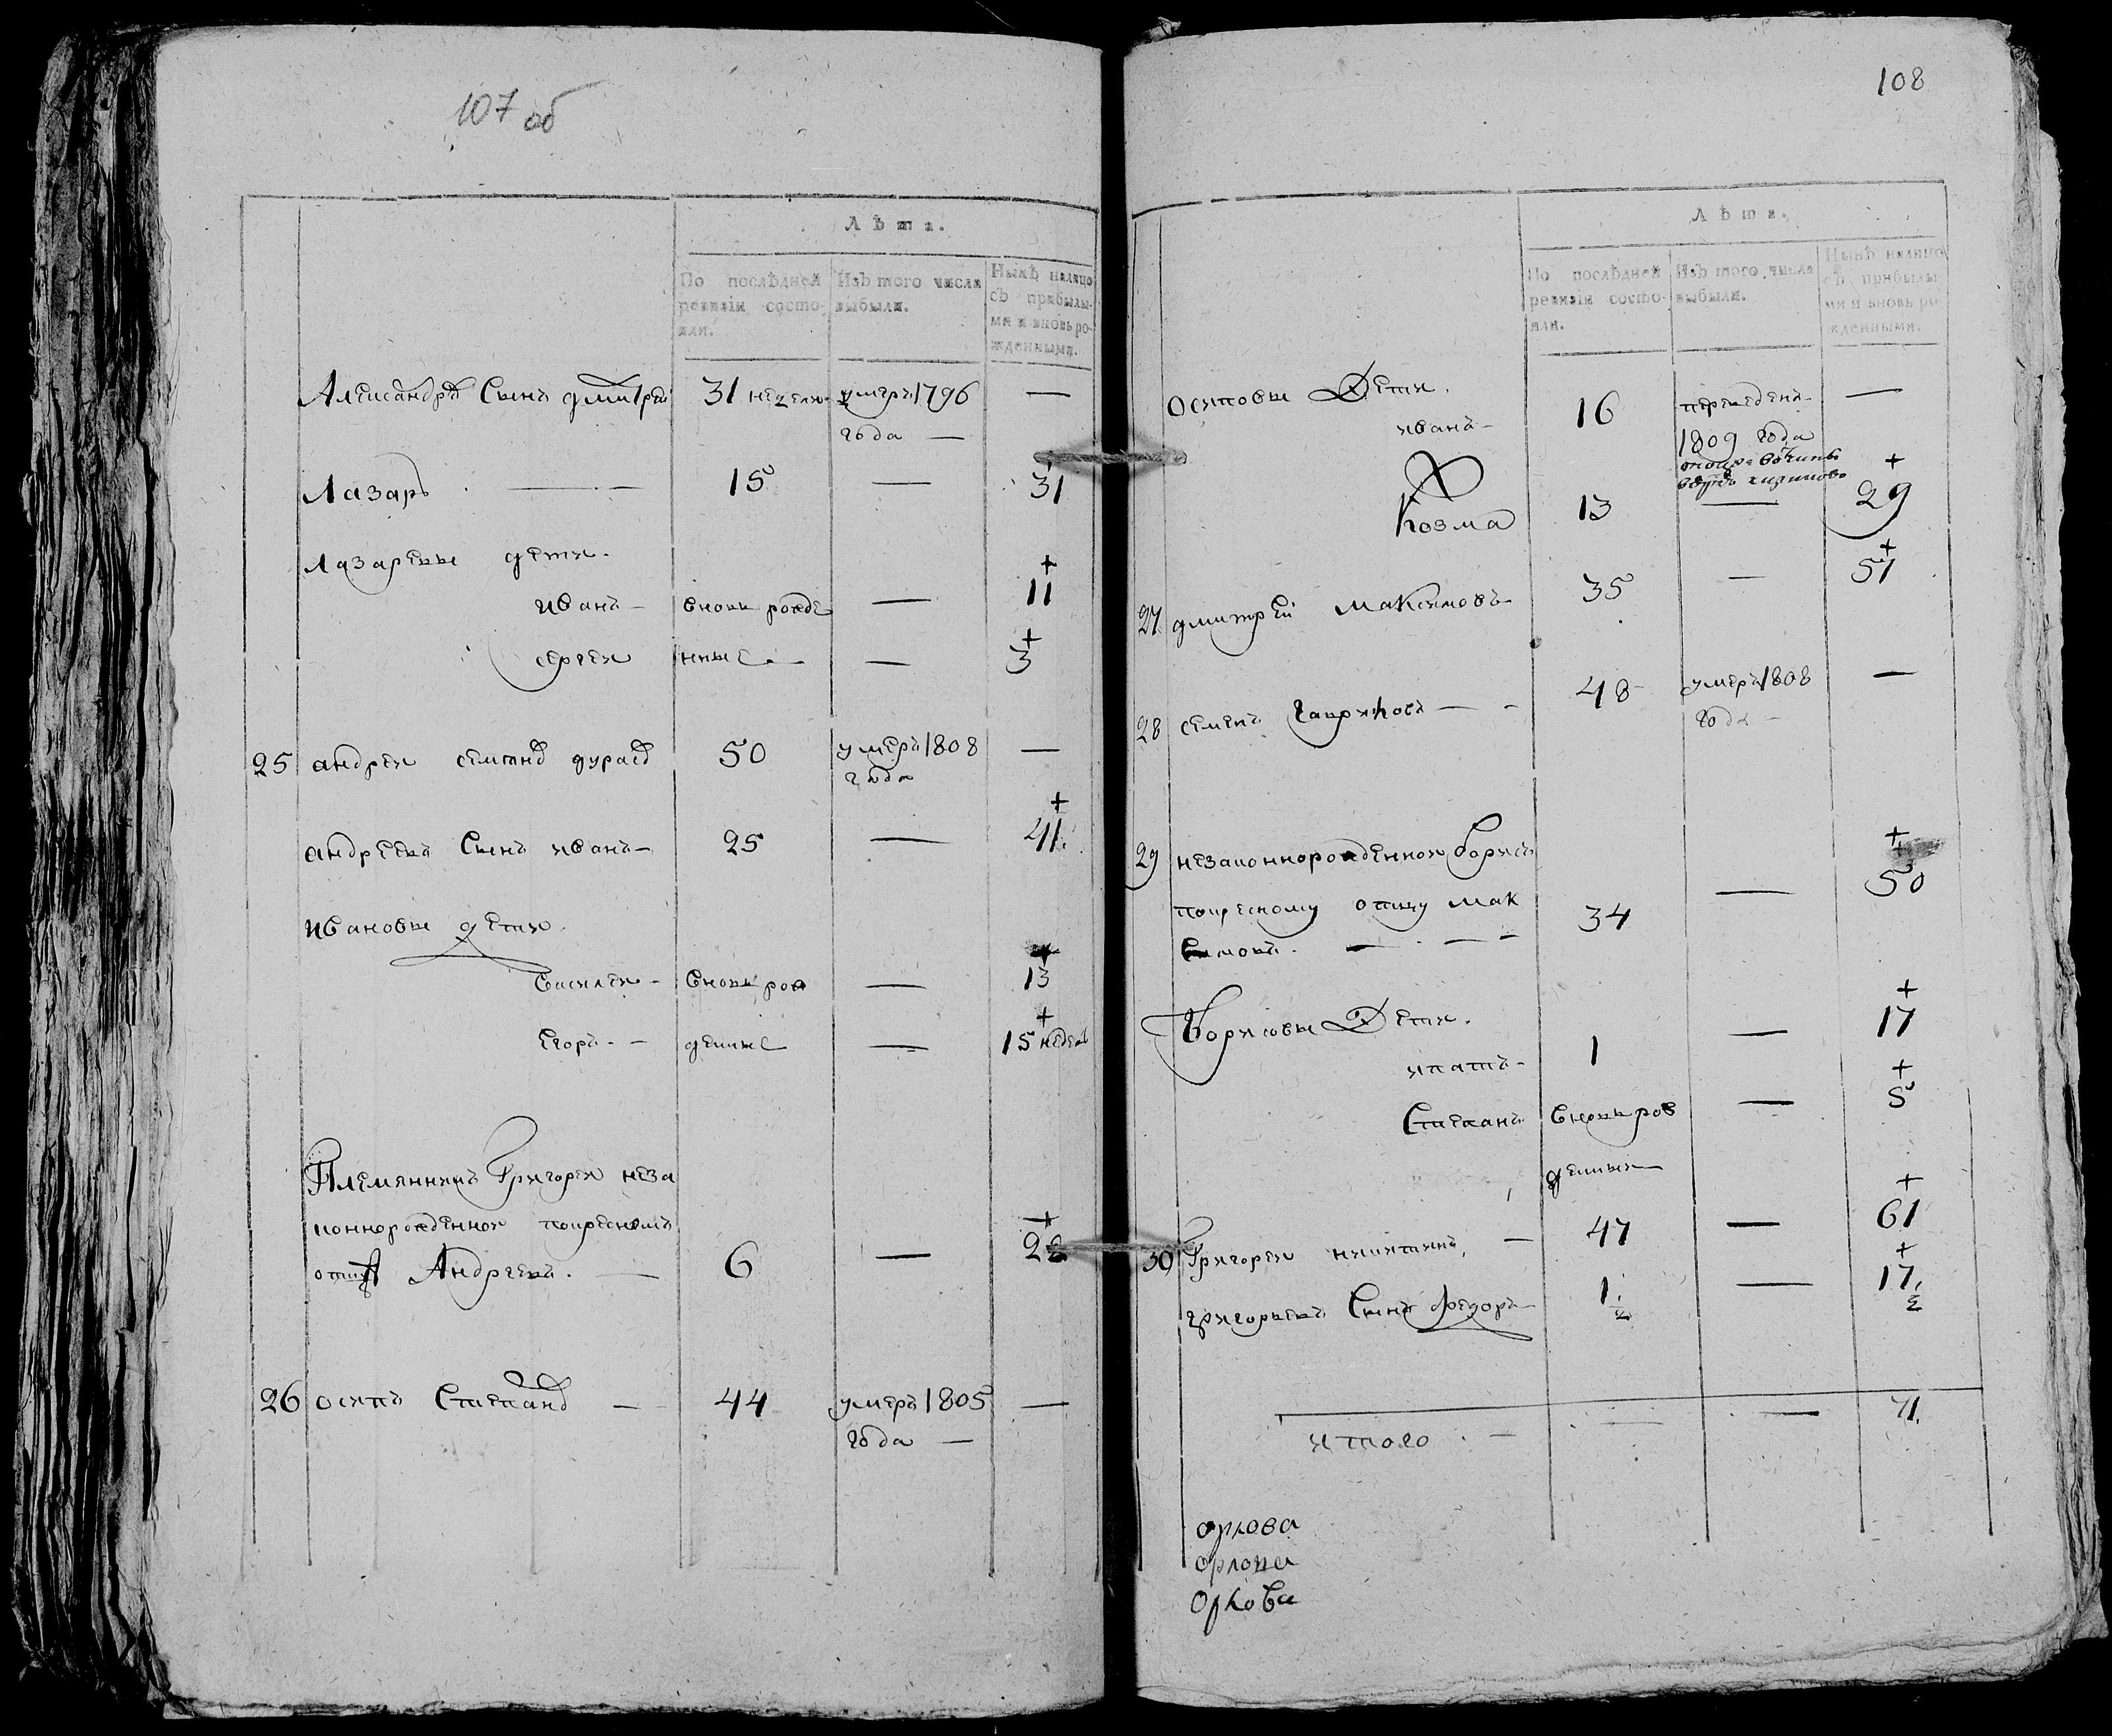 107 об
Лѣта.
По послѣдней ревизіи состояли.
Изъ того числа выбыли.
Нынѣ налицо съ прибылыми и вновь рожденными.
Александръ Сынъ дмитрей 31 неделю умеръ 1796 —
года —
Лазарь — 15 — 31
Лазаревы дети.
иванъ — вновь рожде — + 11
сергеи нные — + 3
25 андреи 50 умеръ 1808 —
года
андреевъ Сынъ иванъ — 25 — + 41
ивановы дети
василеи — вновь рож — + 13
Егоръ — денные — + 15 недель
Племянникъ Григореи неза
коннорожденнои покресному
отцу Андреевъ. — 6 — +
26 осипъ Степановъ — 44 умеръ 1805 —
года —
108
Лѣта.
По послѣдней ревизіи состояли.
Изъ того числа выбыли.
Нынѣ налицо съ прибылыми и вновь рожденными.
осиповы Дети.
иванъ — 16 переведенъ —
1809 года
Козма 13 — + 29
27 дмитреи Максимовъ 35 — + 51
28 семенъ Гавриловъ — 48 умеръ 1808 —
года —
29 незаконнорожденнои борисъ +
покресному отцу Мак 34 — 50
симовъ. —
Борисовы Дети.
ипатъ — 1 — + 17
Степанъ вновь рож — + 5
денныи
30 Григореи никитинъ, — 47 — + 61
григорьевъ Сынъ федоръ — 1 1/2 — + 17 1/2
итого — — — 71.
орлова
орлова
Орлова